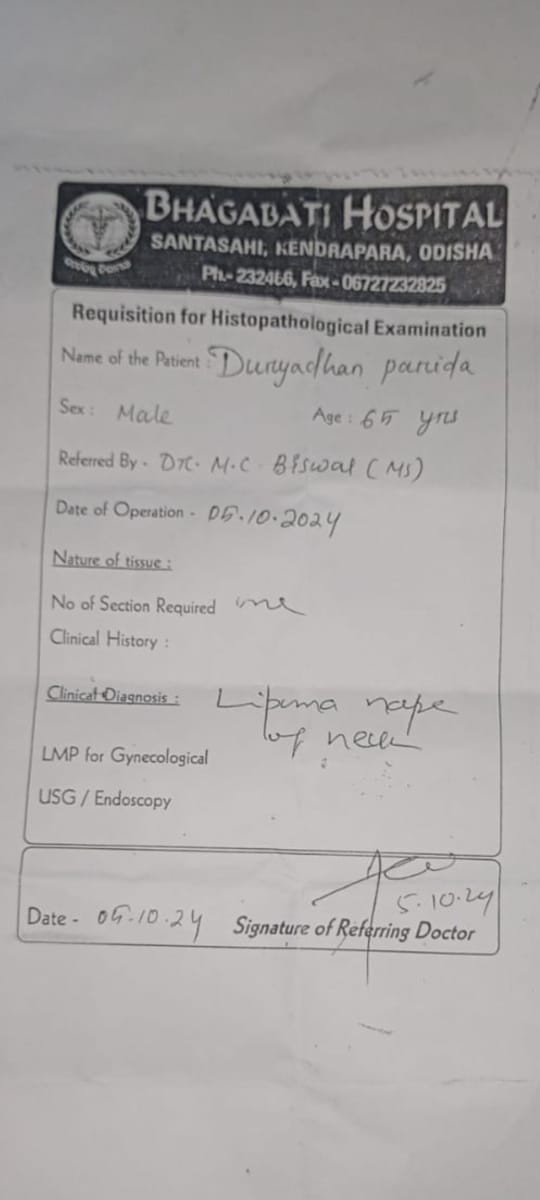 BHAGABATI HOSPITAL
SANTASAHI, KENDRAPARA, ODISHA
Ph.- 232466, Fax - 06727232825
Requisition for Histopathological Examination
Name of the Patient : Duryadhan parida
Sex : Male Age : 65 yrs
Referred By - Dr. M.C. Biswal (MS)
Date of Operation - 05.10.2024
Nature of tissue :
No of Section Required one
Clinical History :
Clinical Diagnosis : Lipoma nape
of neck
LMP for Gynecological
USG / Endoscopy
5.10.24
Date - 05.10.24 Signature of Referring Doctor